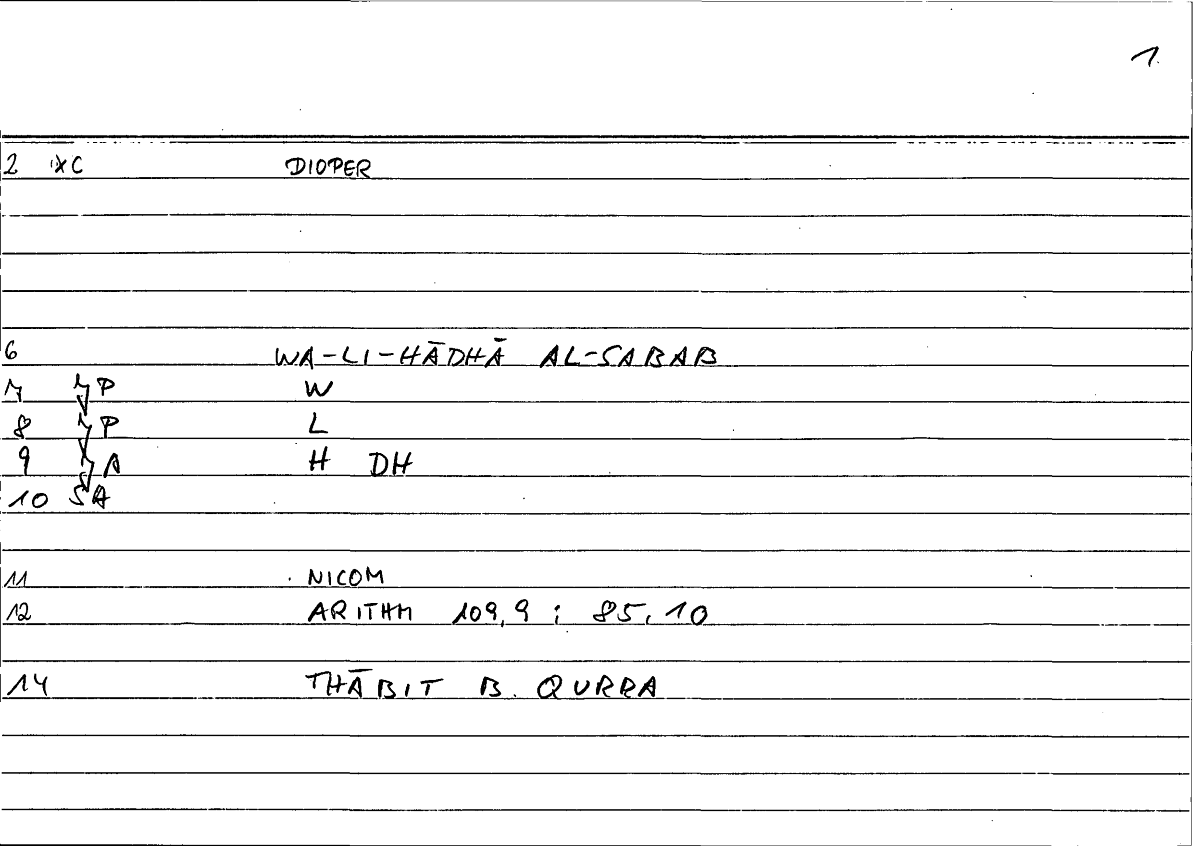 1
2 *C DIOPER
6 WA-LI-HĀDHĀ AL-SABAB
7 P W
8 P L
9 A H DH
10 SA
11 NICOM
12 ARITHM 109,9 ; 85,10
14 THĀBIT B. QURRA